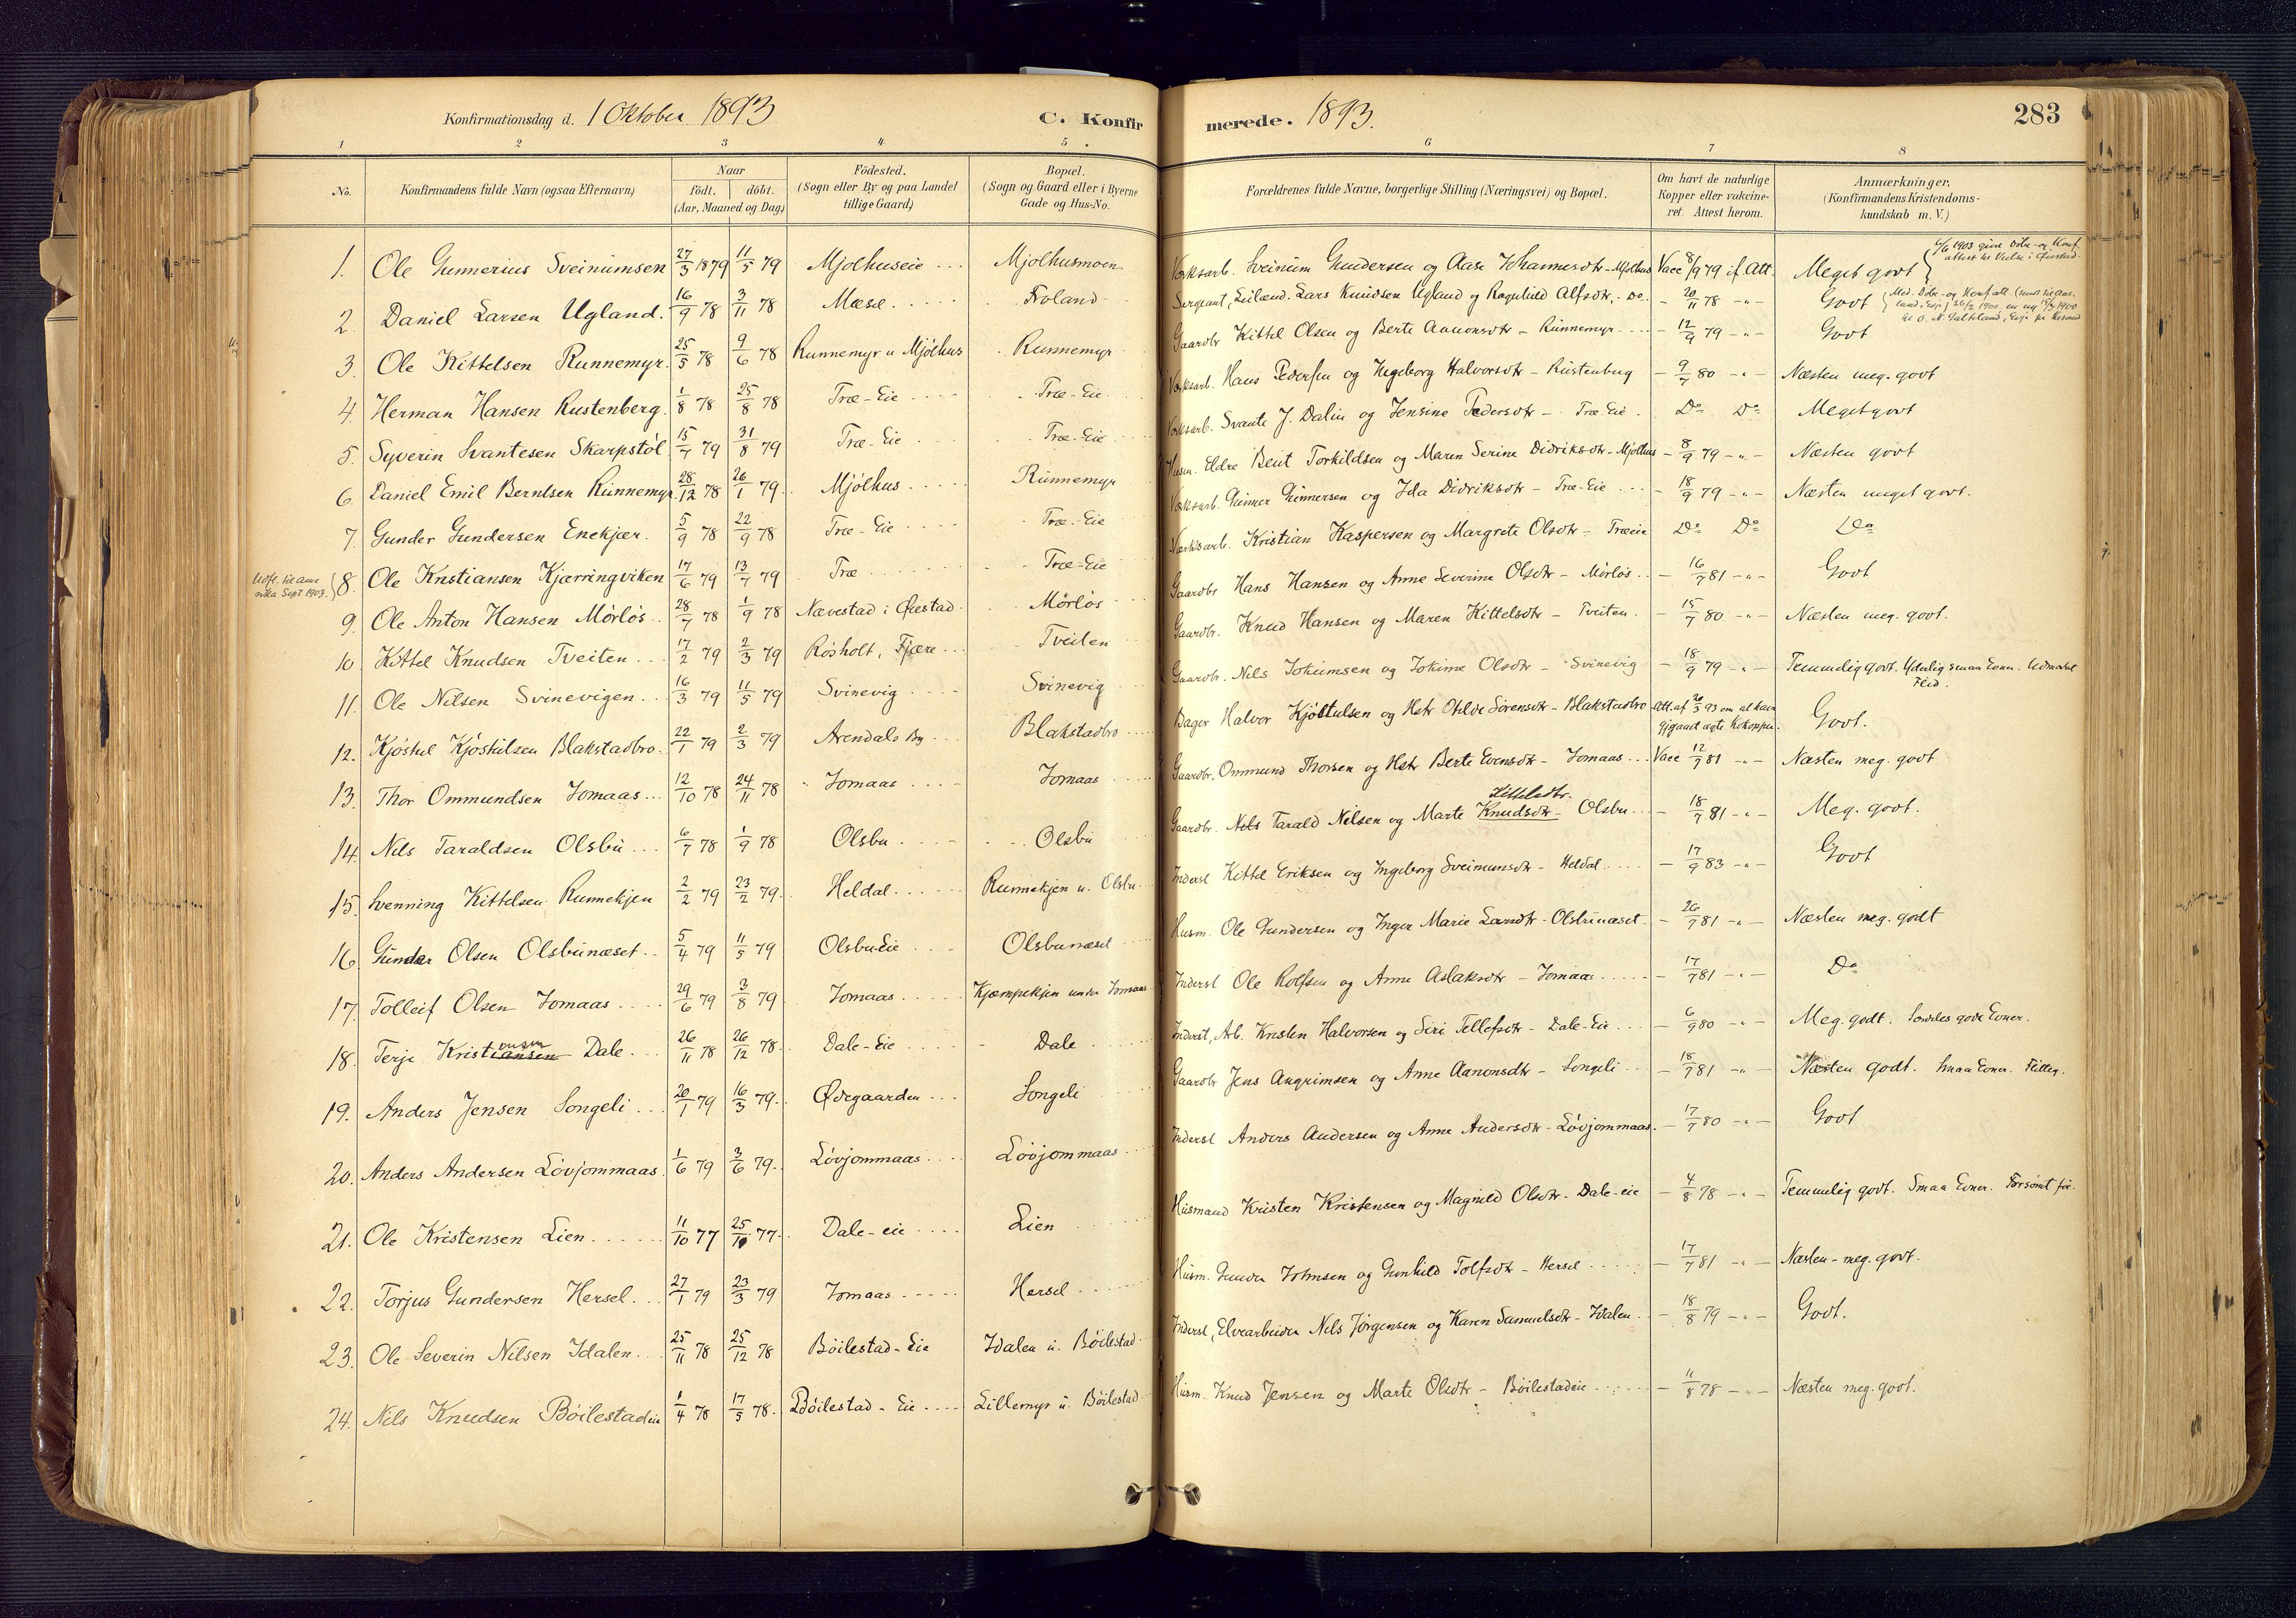 Konfirmationsdag d. 1 Oktober 1893 C. Konfir merede. 1893. 283
1 2 3 4 5 6 7 8
No. Konfirmandens fulde Navn (ogsaa Efternavn) Naar födt. döbt. (Aar, Maaned og Dag) Födested. (Sogn eller By og paa Landet tillige Gaard) Bopæl. (Sogn og Gaard eller i Byerne Gade og Hus-No. Forældrenes fulde Navne, borgerlige Stilling (Næringsvei) og Bopæl. Om havt de naturlige Kopper eller vakcineret. Attest herom. Anmærkninger. (Konfirmandens Kristendomskundskab m. V.)
1. Ole Gunnerius Sveinumsen 27/3 1879 11/5 79 Mjolhuseie Mjolhusmoen Værksarb. Sveinum Gundersen og Aase Johannesdtr - Mjolhus Vacc 8/9 79 if. Att. Meget godt
2. Daniel Larsen Ugland. 16/9 78 3/11 78 Mæsel Froland Sergeant, Leilænd. Lars Knudsen Ugland og Ragnhild Alfsdtr. Do - 20/11 78 -"- Godt
3. Ole Kittelsen Runnemyr. 25/5 78 9/6 78 Runnemyr u Mjölhus Runnemyr Gaardbr Kittel Olsen og Berte Aanonsdtr - Runnemyr - 12/9 79 -"- Godt
4. Herman Hansen Rustenberg. 1/8 78 25/8 78 Træ-Eie Træ-Eie Værksarb. Hans Pedersen og Ingeborg Halvorsdtr - Rustenberg - 9/7 80 -"- Næsten meg. godt
5. Syverin Svantesen Skarpstöl 15/7 79 31/8 79 Træ-Eie Træ-Eie Værksarb. Svante J. Dalin og Jensine Pedersdtr - Træ-Eie Do Do Meget godt
6. Daniel Emil Berntsen Runnemyr 28/12 78 26/1 79. Mjölhus Runnemyr Husm. Eldre Bent Torkildsen og Maren Serine Didriksdtr - Mjölhus - 8/9 79 -"- Næsten godt
7. Gunder Gundersen Enekjær. 5/9 78 22/9 78 Træ-Eie Træ-Eie Værksarb. Gunner Gunnersen og Ida Didriksdtr - Træ-Eie - 18/9 79 -"- Næsten meget godt.
8. Ole Kristiansen Kjærringviken 17/6 79 13/7 79 Træ Træ-Eie Værksarb. Kristian Kaspersen og Margrete Olsdtr - Træeie Do Do Do
9. Ole Anton Hansen Mörlös 28/7 78 1/9 78 Nævestad i Øiestad Mörlös Gaardbr Hans Hansen og Anne Severine Olsdtr - Mörlös - 16/7 81 -"- Godt
10 Kittel Knudsen Tveiten 17/2 79 2/3 79 Rosholt, Fjære Tveiten Gaardbr. Knud Hansen og Maren Kittelsdtr - Tveiten - 15/7 80 -"- Næsten meg. godt.
11. Ole Nilsen Svinevigen 16/3 79 11/5 79 Svinevig Svinevig Gaardbr. Nils Jokumsen og Jokime Olsdtr - Svinevig - 18/9 79 -"- Temmelig godt. Yderlig smaa Evner. Udmærket Flid.
12. Kjöstul Kjöstulsen Blakstadbro. 22/1 79 2/3 79 Arendals By Blakstadbro Bager Halvor Kjöstulsen og Hstr Otilde Sörensdtr - Blakstadbro Att. af 20/3 93 om at have gjgaaet ægte Kokopper. Godt.
13. Thor Ommundsen Jomaas 12/10 78 24/11 78 Jomaas Jomaas Gaardbr. Ommund Thorsen og Hstr Berte Evensdtr - Jomaas Vacc 12/7 81 -"- Næsten meg. godt
14. Nils Taraldsen Olsbu 6/7 78 1/9 78 Olsbu Olsbu Gaardbr. Nils Tarald Nilsen og Marte Knudsdtr Kittelsdtr. - Olsbu - 18/7 81 -"- Meg. godt.
15. Svenning Kittelsen Runnekjen 2/2 79 23/2 79. Heldal Runnekjen u. Olsbu Inderst Kittel Eriksen og Ingeborg Sveinumsdtr - Heldal - 17/9 83 -"- Godt
16. Gunder Olsen Olsbunæset 5/4 79 11/5 79 OlsbuEie Olsbunæset Husm. Ole Gundersen og Inger Marie Larsdtr - Olsbunæset - 26/7 81 -"- Næsten meg. godt
17. Tolleif Olsen Jomaas 29/6 79 3/8 79 Jomaas Kjæmpekjen under Jomaas Inderst Ole Rolfsen og Anne Aslaksdtr - Jomaas - 17/7 81 -"- Do
18. Terje Kristiansen ensen Dale 26/11 78 26/12 78. Dale-Eie Dale Inderst, Arb. Kristen Halvorsen og Siri Tellefsdtr - Dale-Eie - 6/9 80 -"- Meg. godt. Særdeles gode Evner.
19. Anders Jensen Songeli 20/1 79 16/3 79. Ødegaarden Songeli Gaardbr Jens Angrimsen og Anne Aanonsdtr - Songeli - 18/7 81 -"- Næsten godt. Smaa Evner. Flittig.
20. Anders Andersen Lövjommaas 1/6 79 3/6 79. Lövjommaas Lövjommaas Inderst Anders Andersen og Anne Andersdtr - Lövjommaas. - 17/7 80 -"- Godt
21. Ole Kristensen Lien 11/10 77 25/10 77. Dale-eie Lien Husmand Kristen Kristensen og Magnild Olsdtr - Dale-eie - 4/8 78 -"- Temmelig godt. Smaa Evner. Forsømt før.
22. Torjus Gundersen Hersel 27/1 79 23/3 79 Jomaas Hersel Husm. Gunder Johnsen og Gunhild Tolfsdtr - Hersel - 17/7 81 -"- Næsten-meg. godt.
23. Ole Severin Nilsen Idalen 25/11 78 25/12 78 Böilestad-Eie Idalen u. Böilestad Inderst, Elvearbeider Nils Jörgensen og Karen Samuelsdtr - Idalen - 18/8 79 -"- Godt.
24. Nils Knudsen Böilestadeie 1/4 78 17/5 78. Böilestad-Eie Lillemyr u. Böilestad Husm. Knud Jensen og Marte Olsdtr - Böilestadeie - 11/8 78 -"- Næsten meg. godt.